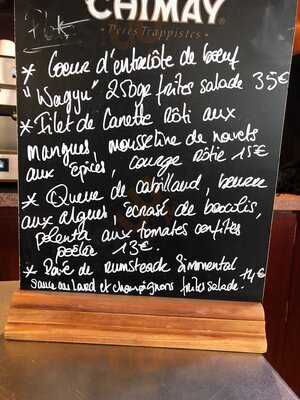 CHIMAY
Pères Trappistes
Plats
* Coeur d'entrecôte de boeuf
"Wagyu" 250gr frites salade 35€
* Filet de Canette Rôti aux
mangues, mousseline de navets
aux épices, courge rôtie 15€
* Queue de cabillaud, beurre
aux algues, écrasé de brocolis,
polenta aux tomates confites
poêlée 13€.
* Pavé de rumsteack Simmental 14€
sauce au lard et champignons frites salade.